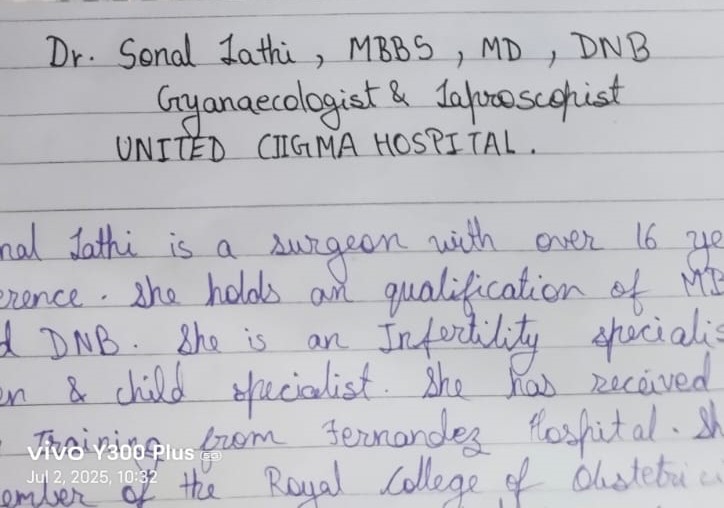 Dr. Sonal Lathi, MBBS, MD, DNB
Gyanaecologist & Laproscopist
UNITED CIIGMA HOSPITAL.
nal Lathi is a surgeon with over 16 ye
erence. she holds an qualification of MB
d DNB. She is an Infertility specialis
en & child specialist. She has received
Training from Fernandez Hospital. Sh
vivo Y300 Plus 5G
Jul 2, 2025, 10:32
ember of the Royal College of Obstetrici